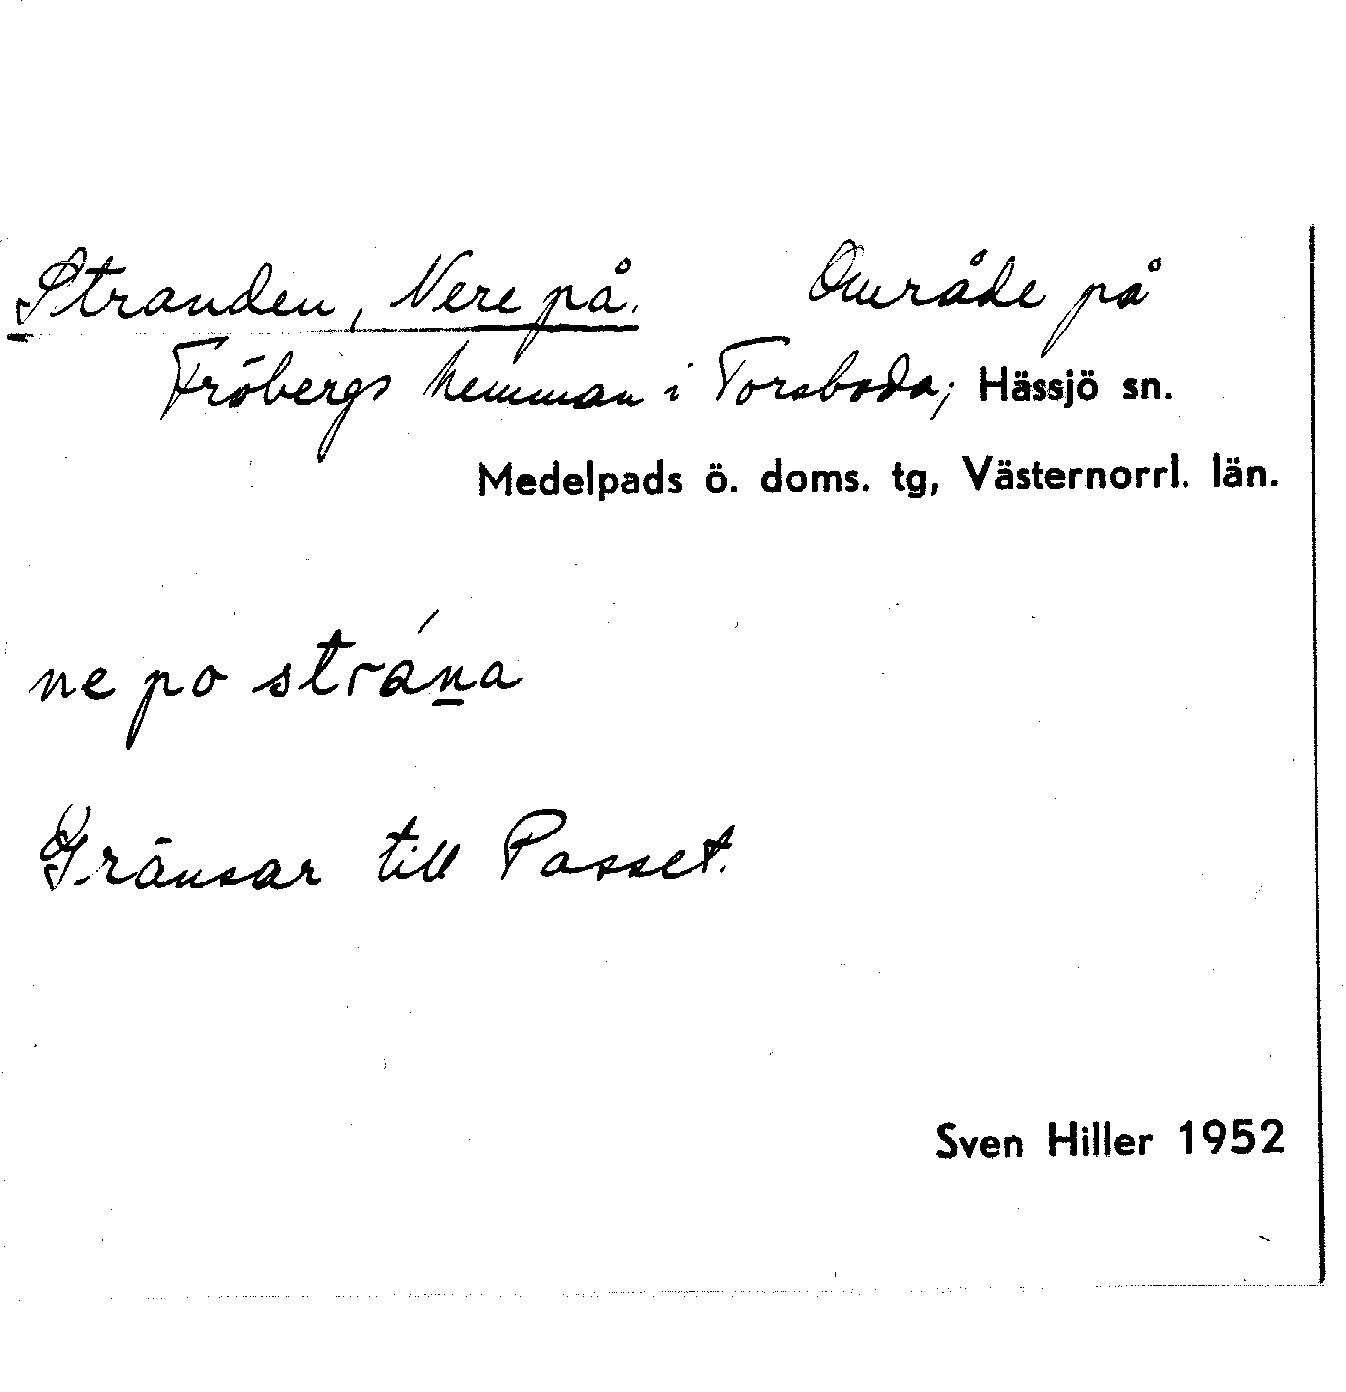 Stranden, Nere på. Område på
Fröbergs hemman i Torsboda; Hässjö sn.
Medelpads ö. doms. tg, Västernorrl. län.
ne po strána
Gränsar till Passet.
Sven Hiller 1952